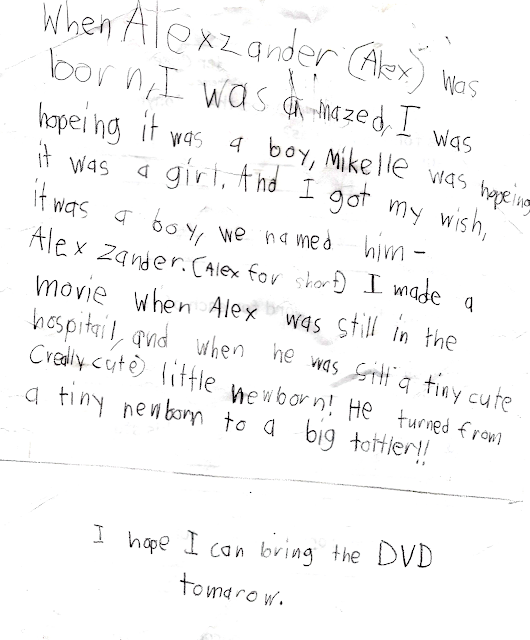 When Alexzander (Alex) was
born, I was amazed, I was
hopeing it was a boy, Mikelle was hopeing
it was a girl. And I got my wish,
it was a boy, we named him -
Alexzander. (Alex for short) I made a
movie when Alex was still in the
hospitail, and when he was still a tiny cute
(really cute) little newborn! He turned from
a tiny newborn to a big tottler!!
I hope I can bring the DVD
tomarow.